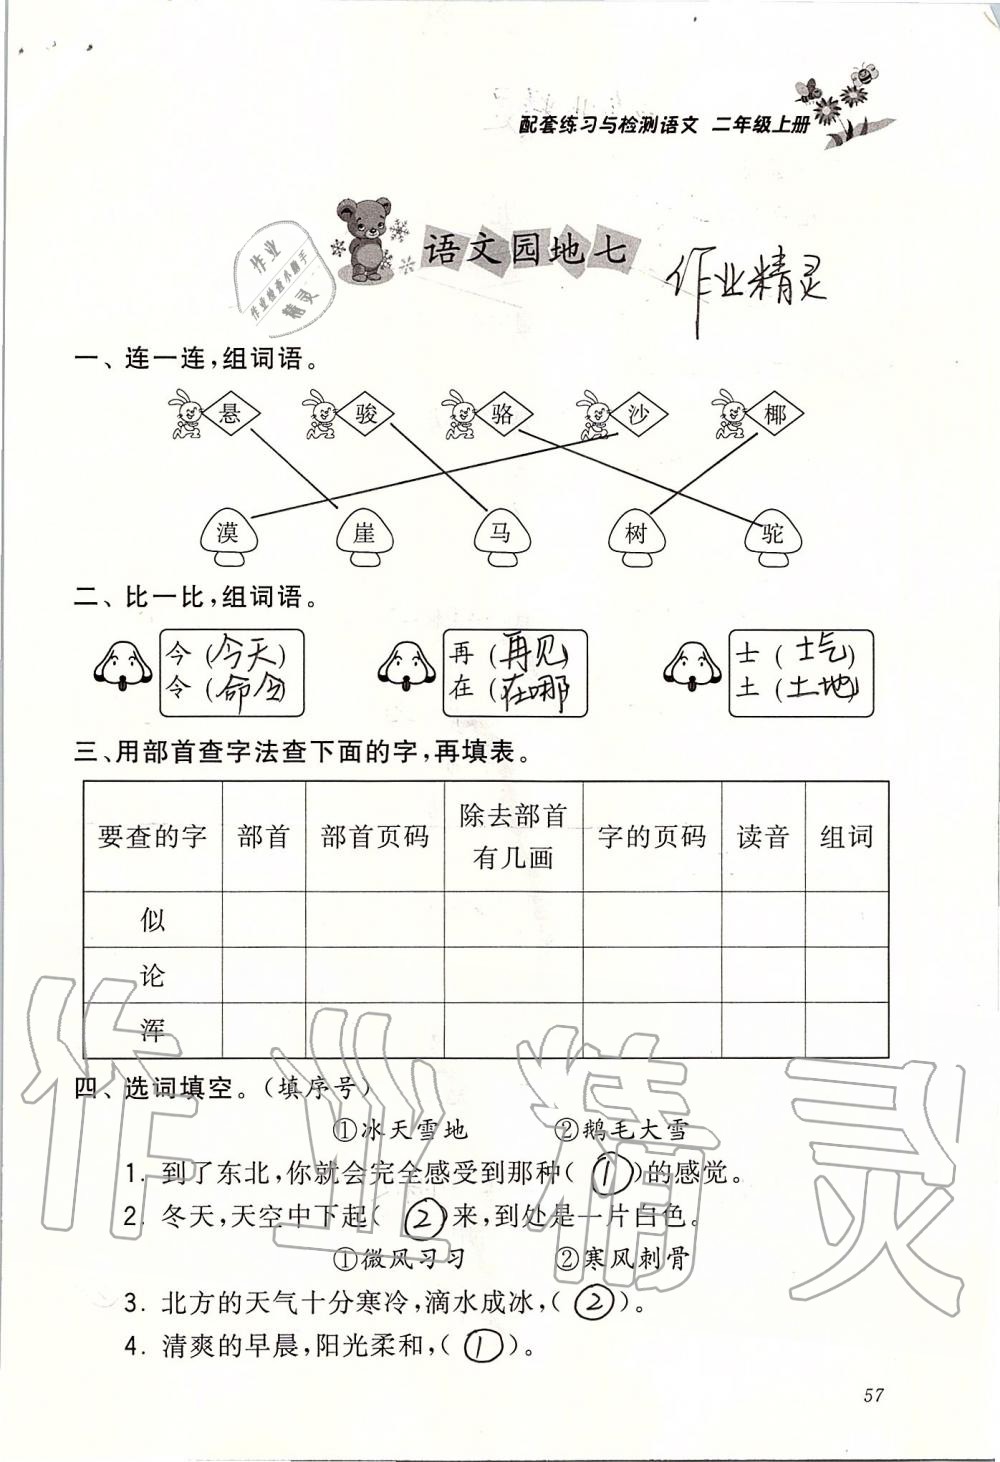 配套练习与检测语文 二年级上册
语文园地七
作业
作业检查小助手
精灵
作业精灵
一、连一连,组词语。
悬 骏 骆 沙 椰
漠 崖 马 树 驼
二、比一比,组词语。
今(今天) 再(再见) 士(士气)
令(命令) 在(在哪) 土(土地)
三、用部首查字法查下面的字,再填表。
要查的字 部首 部首页码 除去部首有几画 字的页码 读音 组词
似
论
浑
四、选词填空。(填序号)
①冰天雪地 ②鹅毛大雪
1. 到了东北,你就会完全感受到那种(①)的感觉。
2. 冬天,天空中下起(②)来,到处是一片白色。
①微风习习 ②寒风刺骨
3. 北方的天气十分寒冷,滴水成冰,(②)。
4. 清爽的早晨,阳光柔和,(①)。
作业精灵
57